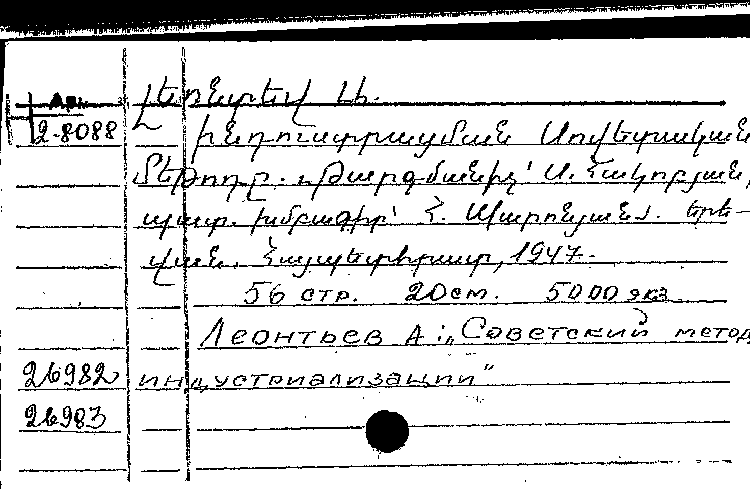 Ар.
2-8088
Լեոնտեվ Ա.
Ինդուստրացման Սովետական
մեթոդը. Թարգմանիչ՝ Ա. Հակոբյան,
պատ. խմբագիր՝ Հ. Մարոնյան. Երե-
վան. Հայպետհրատ, 1947.
56 стр. 20см. 5000 экз
Леонтьев А: „Советский метод
26982 индустриализации"
26983